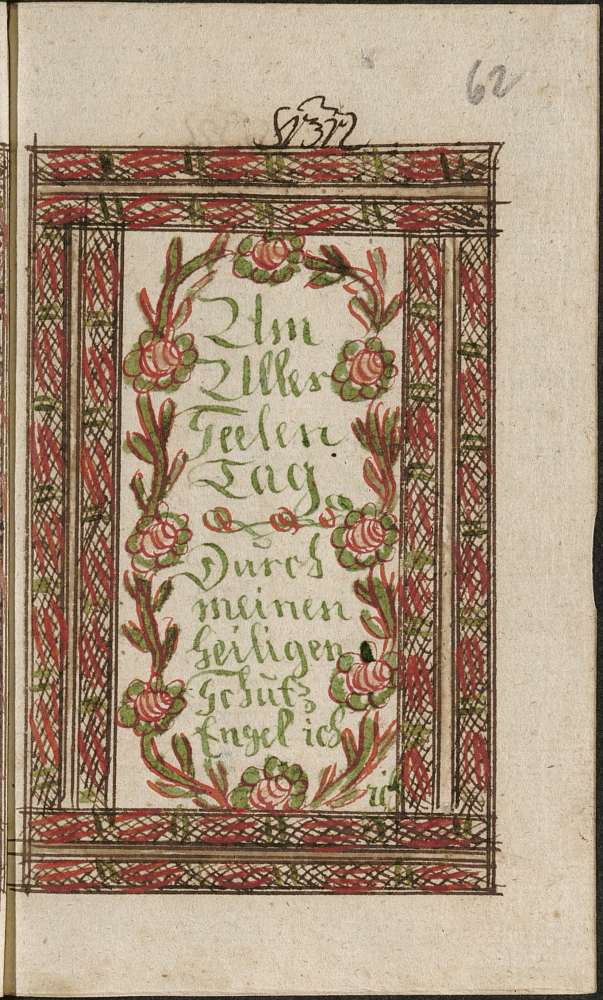 62
Am
Aller
Seelen
Tag
Durch
meinen
heiligen
Schutz
Engel ich